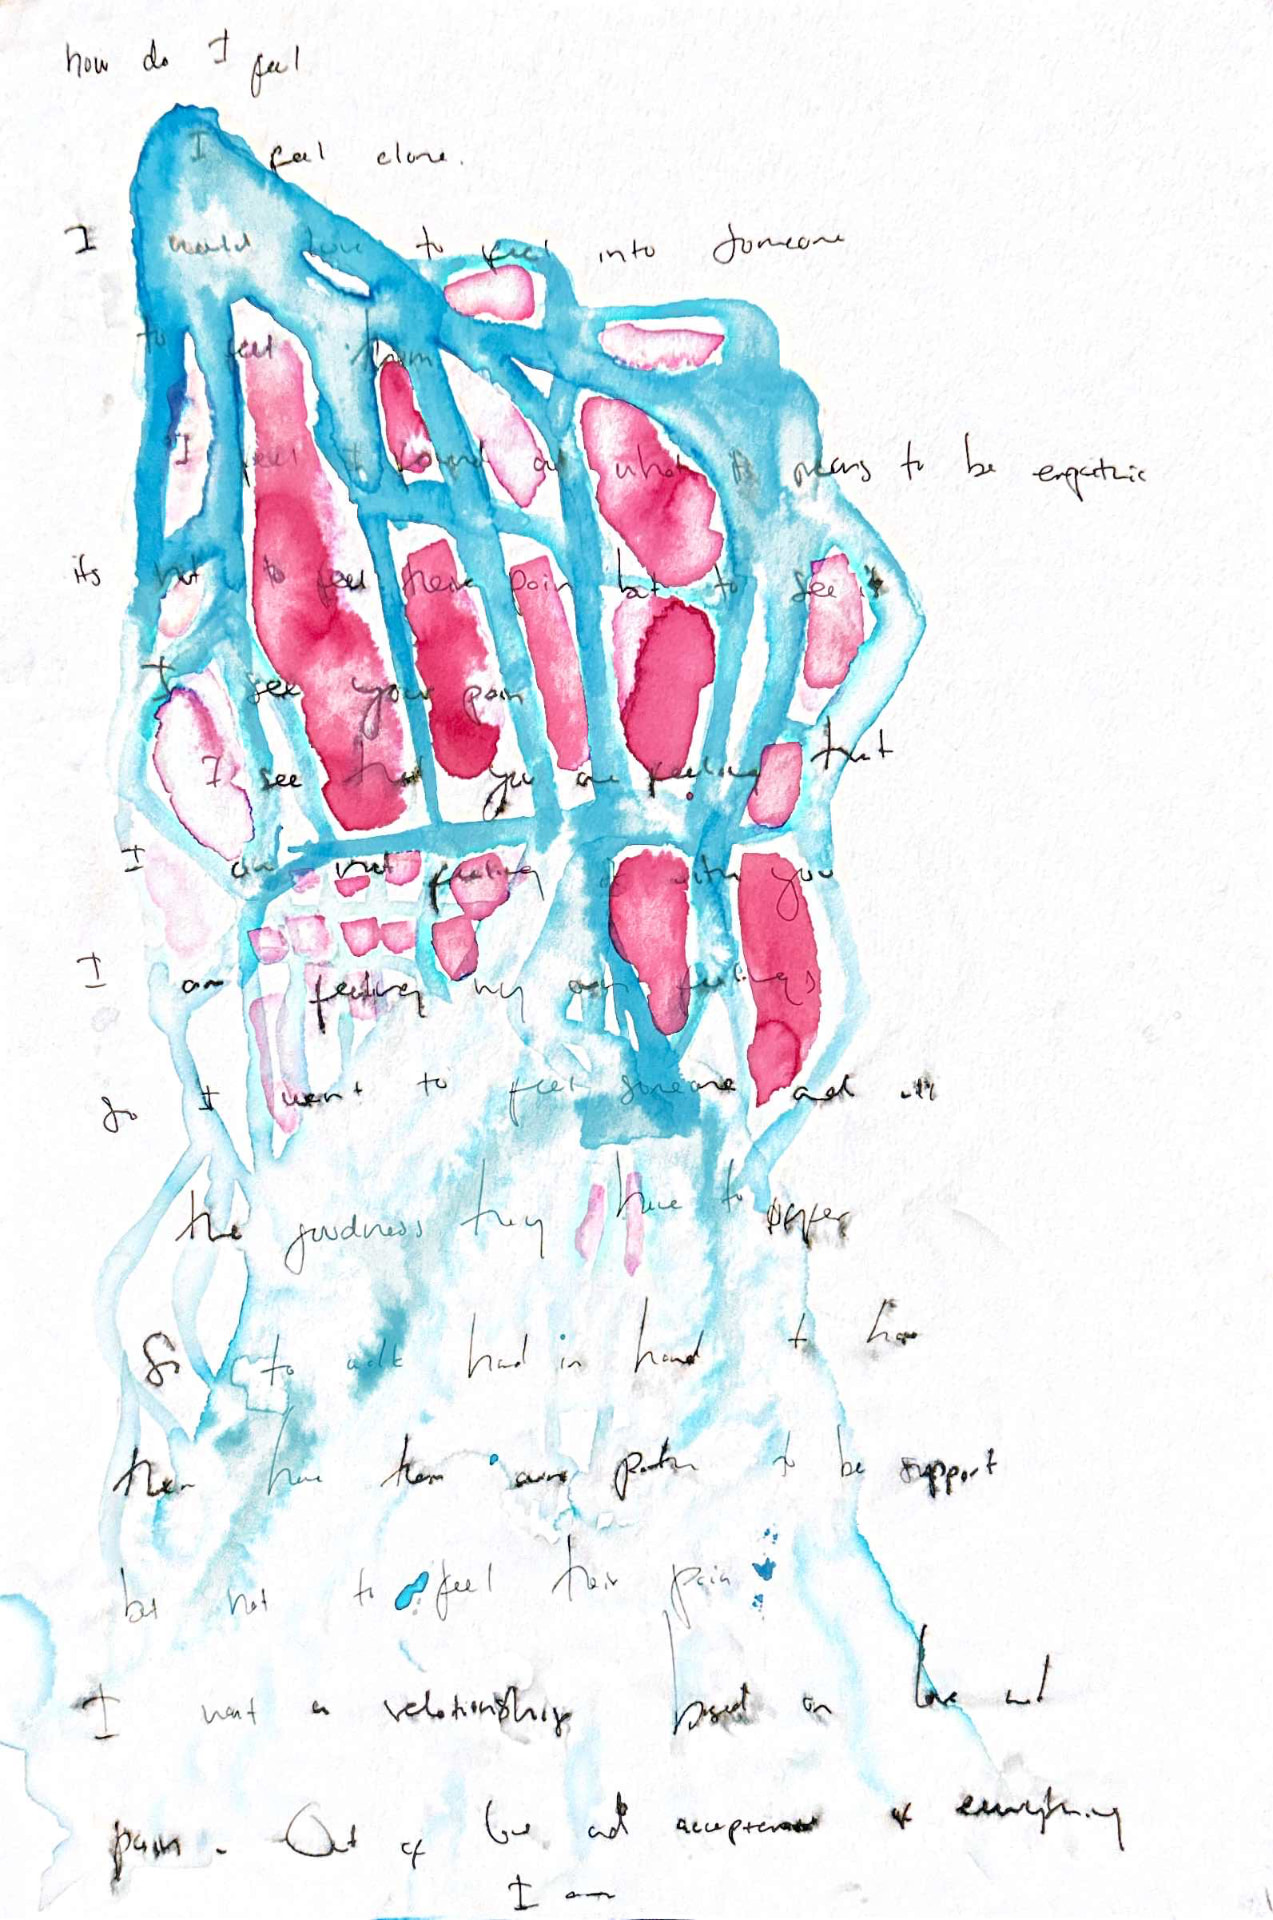 how do I feel
I feel alone.
I would love to feel into someone
to feel them
I feel I found out what it means to be empathic
its not to feel their pain but to see it
I see your pain
I see that you are feeling that
I am not feeling it with you
I am feeling my own feelings
So I want to feel someone and all
the goodness they have to offer
So to walk hand in hand to
them have them own path to be support
but not to feel their pain
I want a relationship based on love and
pain. Out of love and acceptance of everything
I am